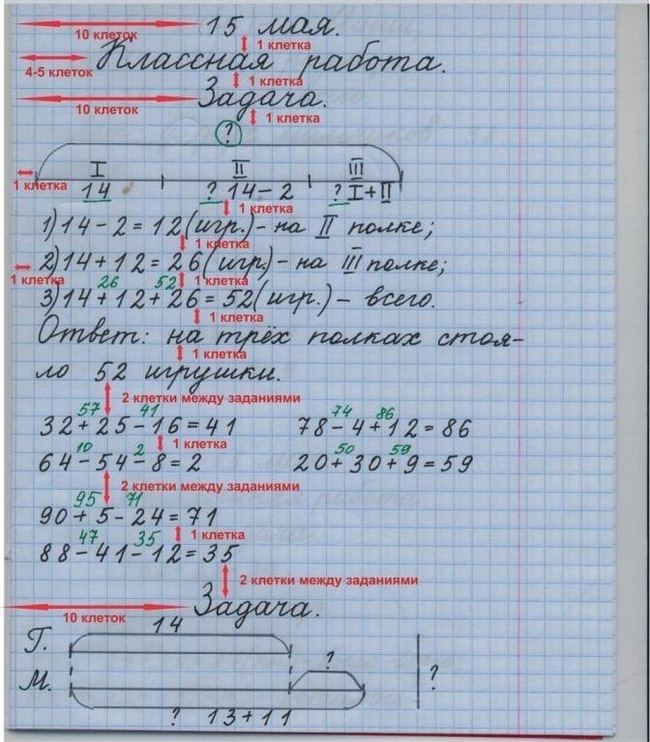 10 клеток 15 мая.
1 клетка
4-5 клеток Классная работа.
1 клетка
10 клеток Задача.
1 клетка
?
I II III
1 клетка 14 ? 14-2 ? I+II
1 клетка
1) 14-2=12 (игр.) - на II полке;
1 клетка
2) 14+12=26 (игр.) - на III полке;
1 клетка 26 52 1 клетка
3) 14+12+26=52 (игр.) - всего.
1 клетка
Ответ: на трёх полках стоя-
1 клетка
ло 52 игрушки.
2 клетки между заданиями
57 41 74 86
32+25-16=41 78-4+12=86
1 клетка
10 2 50 59
64-54-8=2 20+30+9=59
2 клетки между заданиями
95 71
90+5-24=71
1 клетка
47 35
88-41-12=35
2 клетки между заданиями
10 клеток Задача.
14
Г.
?
М. ?
? 13+11